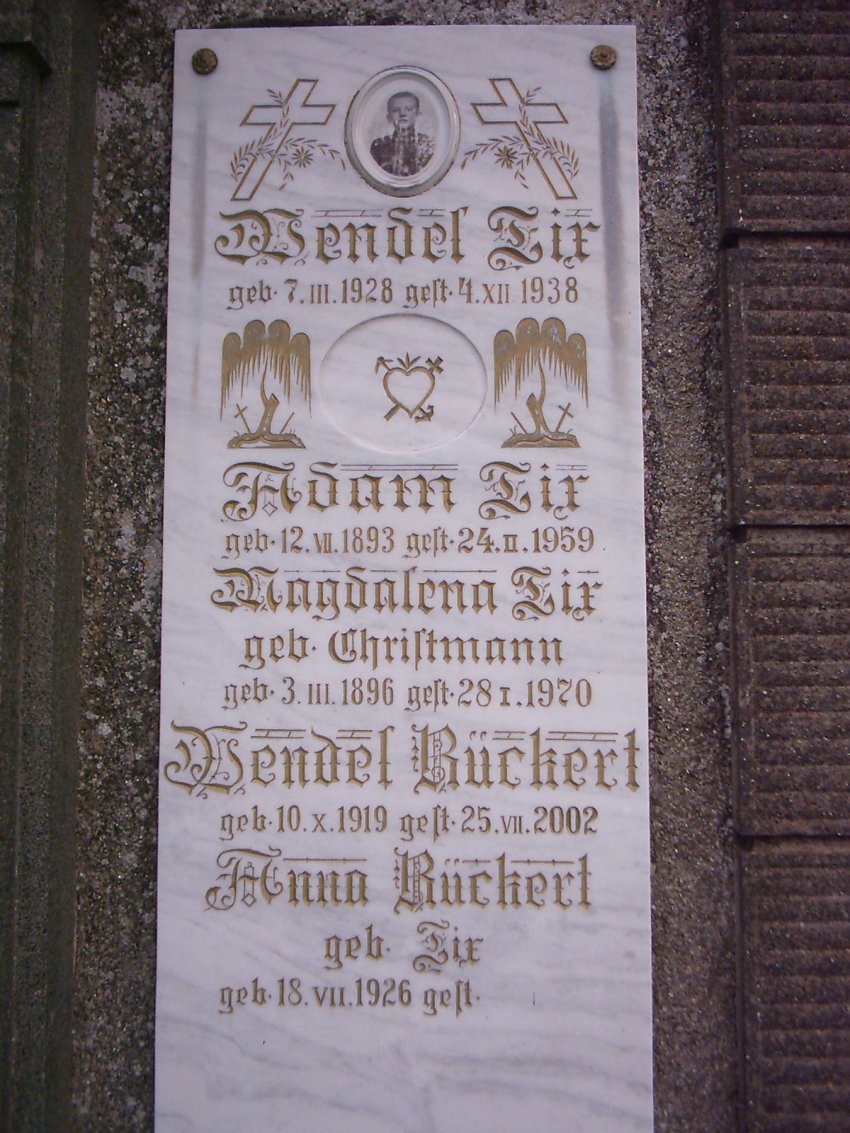 Wendel Tix
geb. 7.III.1928 geſt. 4.XII 1938
Adam Tix
geb. 12.VII.1893 geſt. 24.II.1959
Magdalena Tix
geb. Chriſtmann
geb. 3.III.1896 geſt. 28 I.1970
Wendel Rückert
geb. 10.X.1919 geſt. 25.VII.2002
Anna Rückert
geb. Tix
geb. 18.VII.1926 geſt.